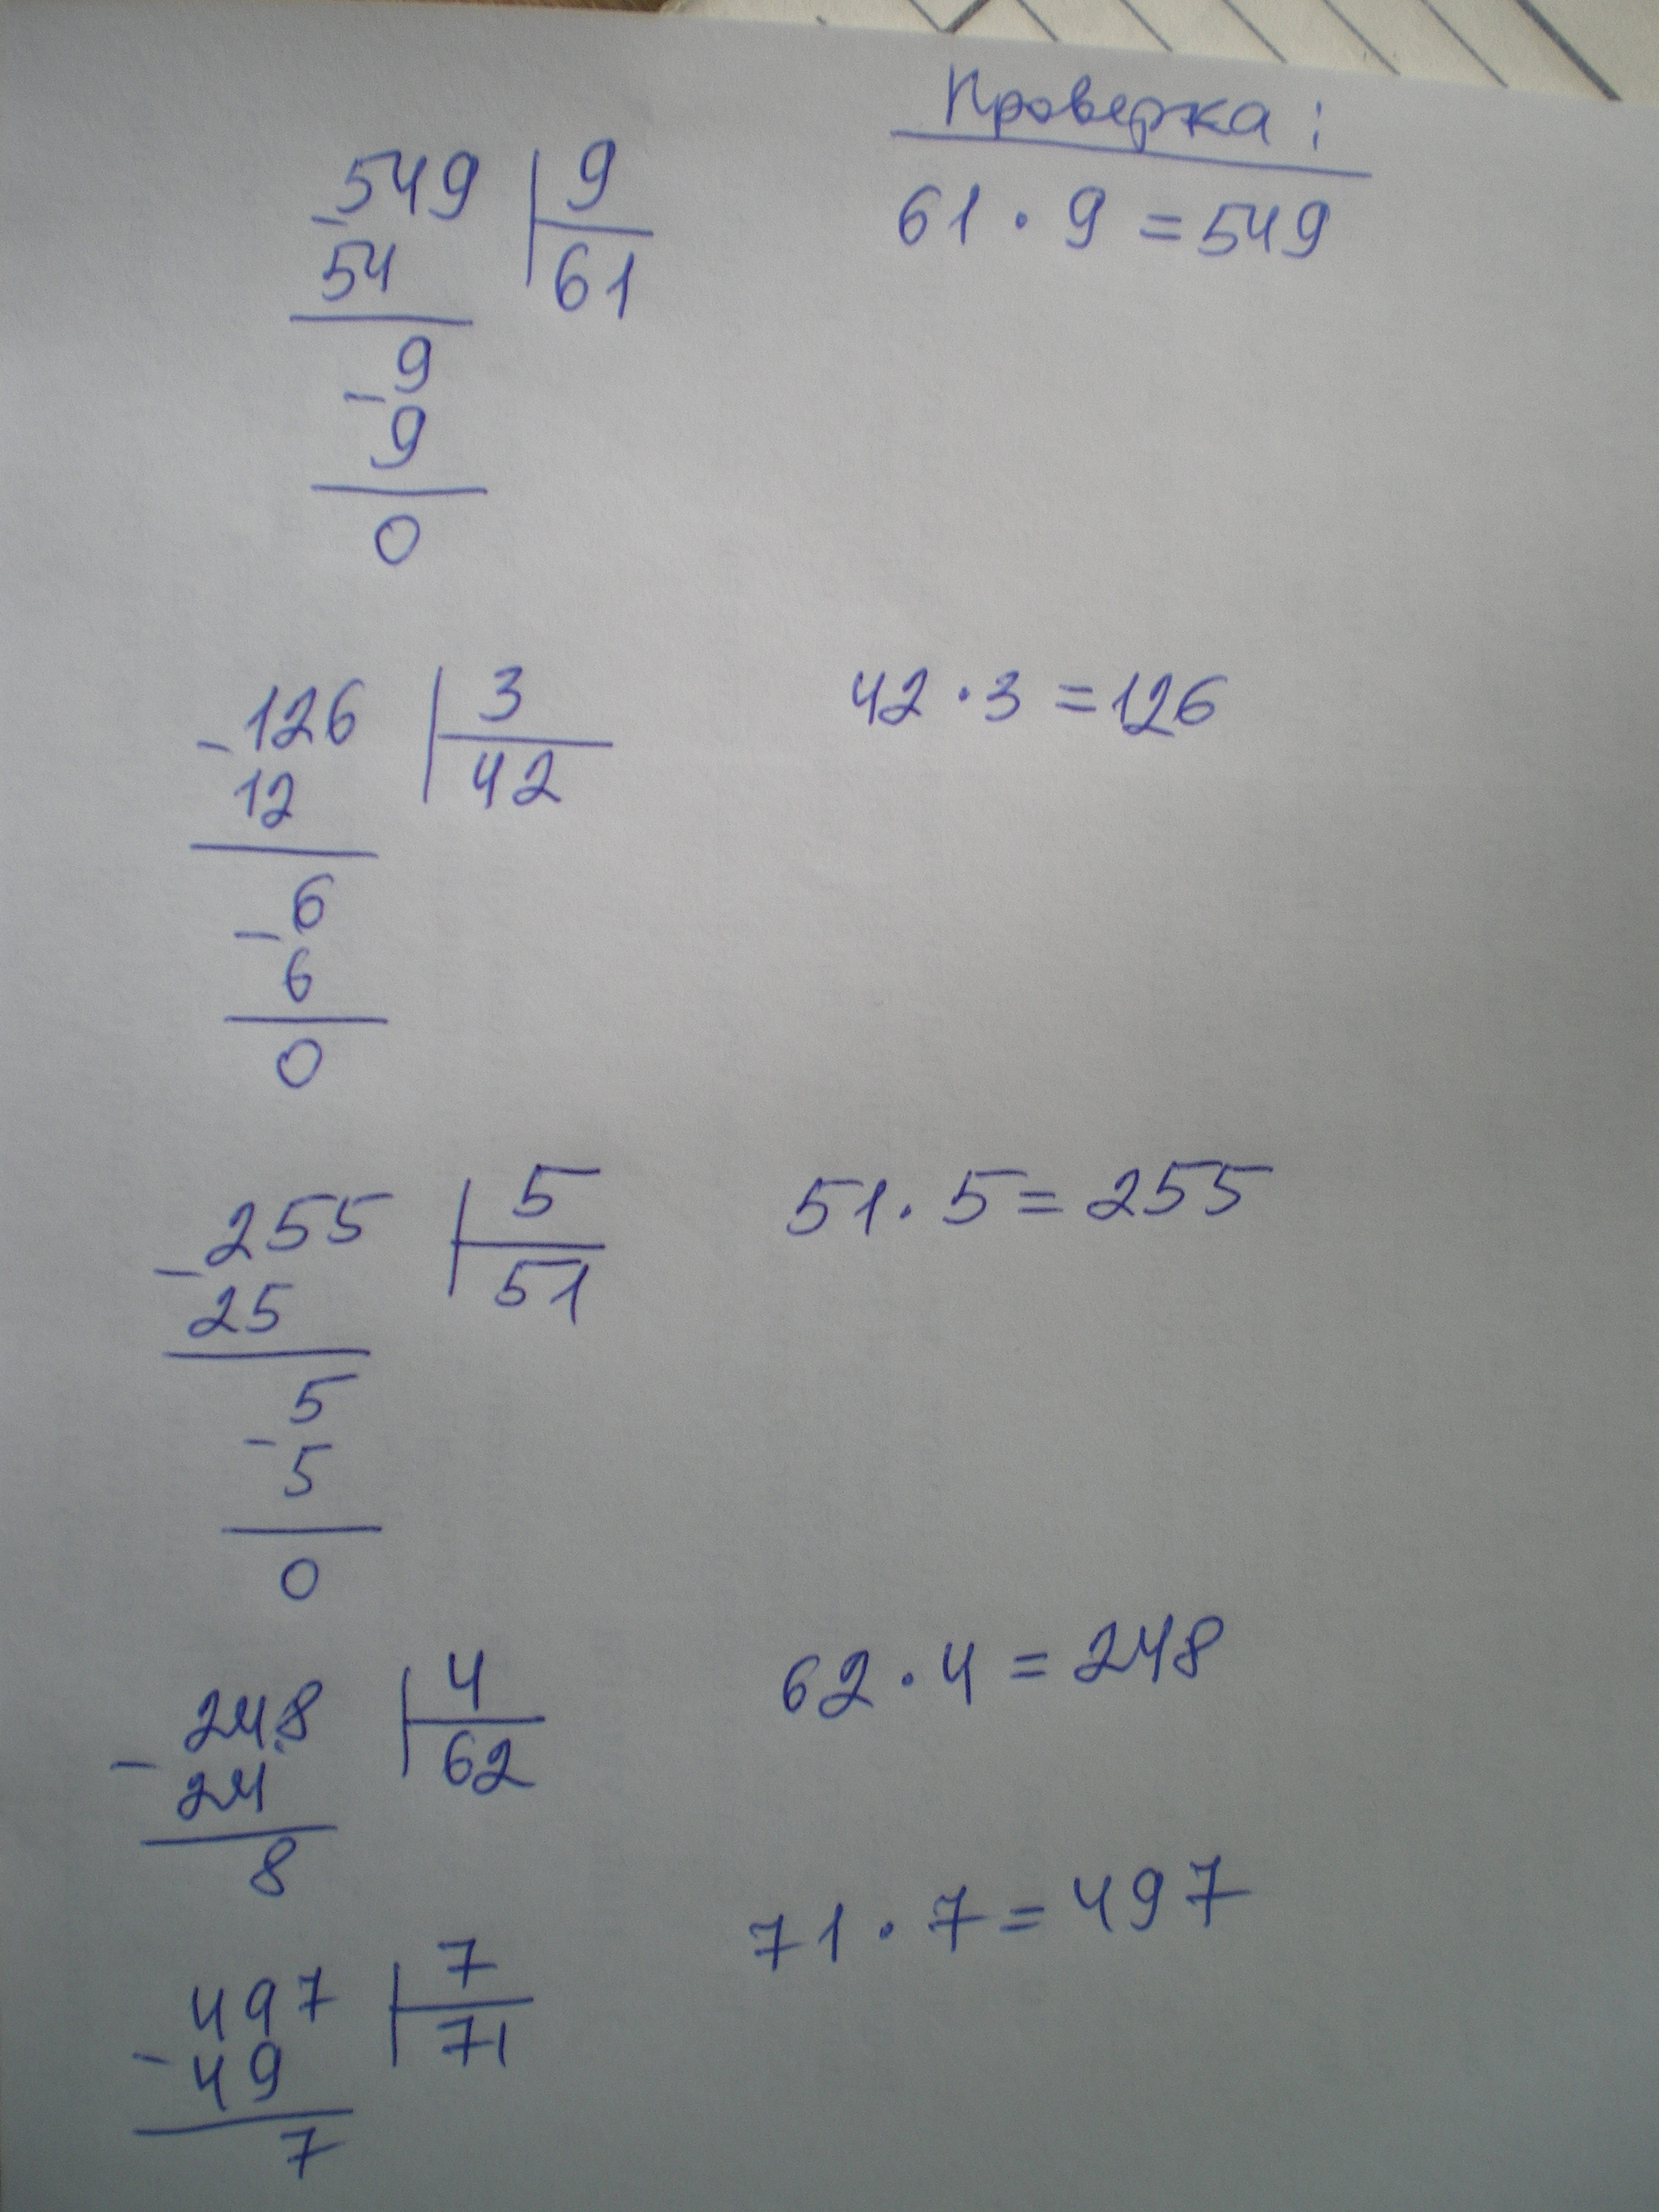 Проверка:
-549 | 9
54 61
61 · 9 = 549
-9
9
0
-126 | 3
12 42
42 · 3 = 126
-6
6
0
-255 | 5
25 51
51 · 5 = 255
-5
5
0
-248 | 4
24 62
62 · 4 = 248
8
-497 | 7
49 71
71 · 7 = 497
7